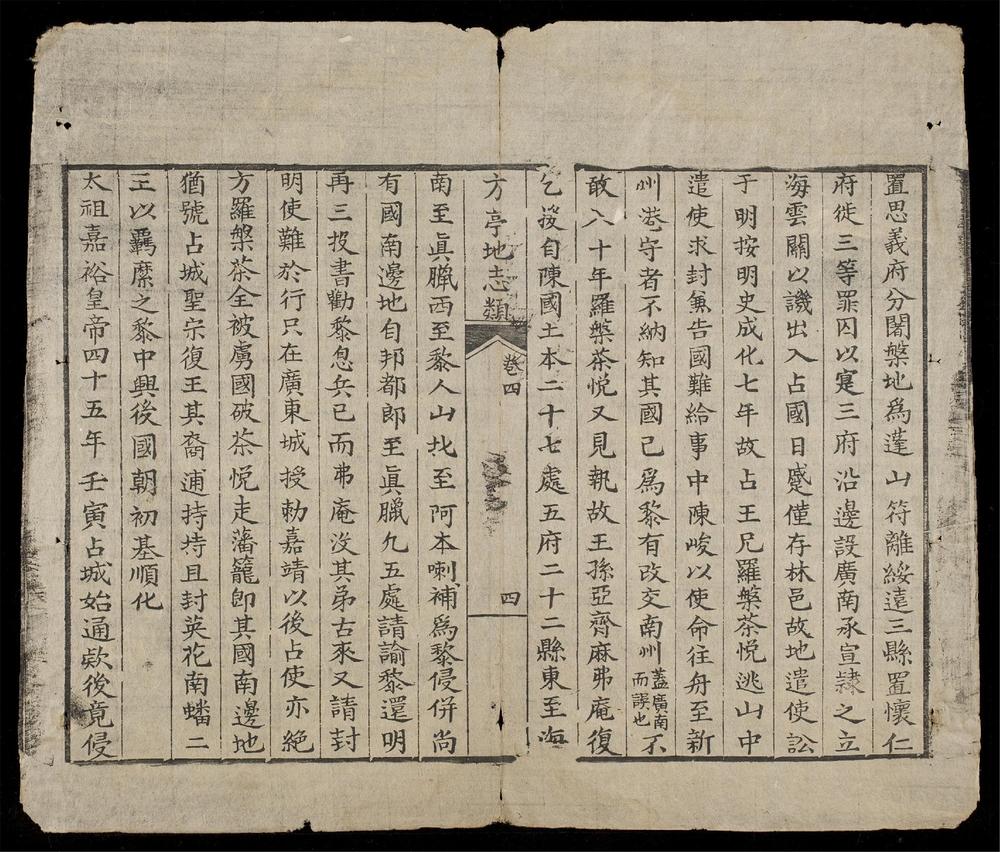 置思義府分闍槃地爲蓬山符離綏遠三縣置懷仁
府徙三等罪囚以寔三府沿邊設廣南承宣隷之立
海雲關以譏出入占國日蹙僅存林邑故地遣使訟
于明按明史成化七年故占王尼羅槃茶悅逃山中
遣使求封兼告國難給事中陳峻以使命往舟至新
州港守者不納知其國已爲黎有改交南州蓋廣南而誤也不
敢入十年羅槃茶悅又見執故王孫亞齊麻弗庵復
乞援自陳國土本二十七處五府二十二縣東至海
方亭地志類 卷四 四
南至眞臘西至黎人山北至阿本喇補爲黎侵併尚
有國南邊地自邦都郎至眞臘九五處請諭黎還明
再三投書勸黎息兵已而弗庵沒其弟古來又請封
明使難於行只在廣東城授勅嘉靖以後占使亦絕
方羅槃茶全被虜國破茶悅走藩籠卽其國南邊地
猶號占城聖宗復王其裔逋持持且封英花南蟠二
王以羈縻之黎中興後國朝初基順化
太祖嘉裕皇帝四十五年壬寅占城始通欵後竟侵